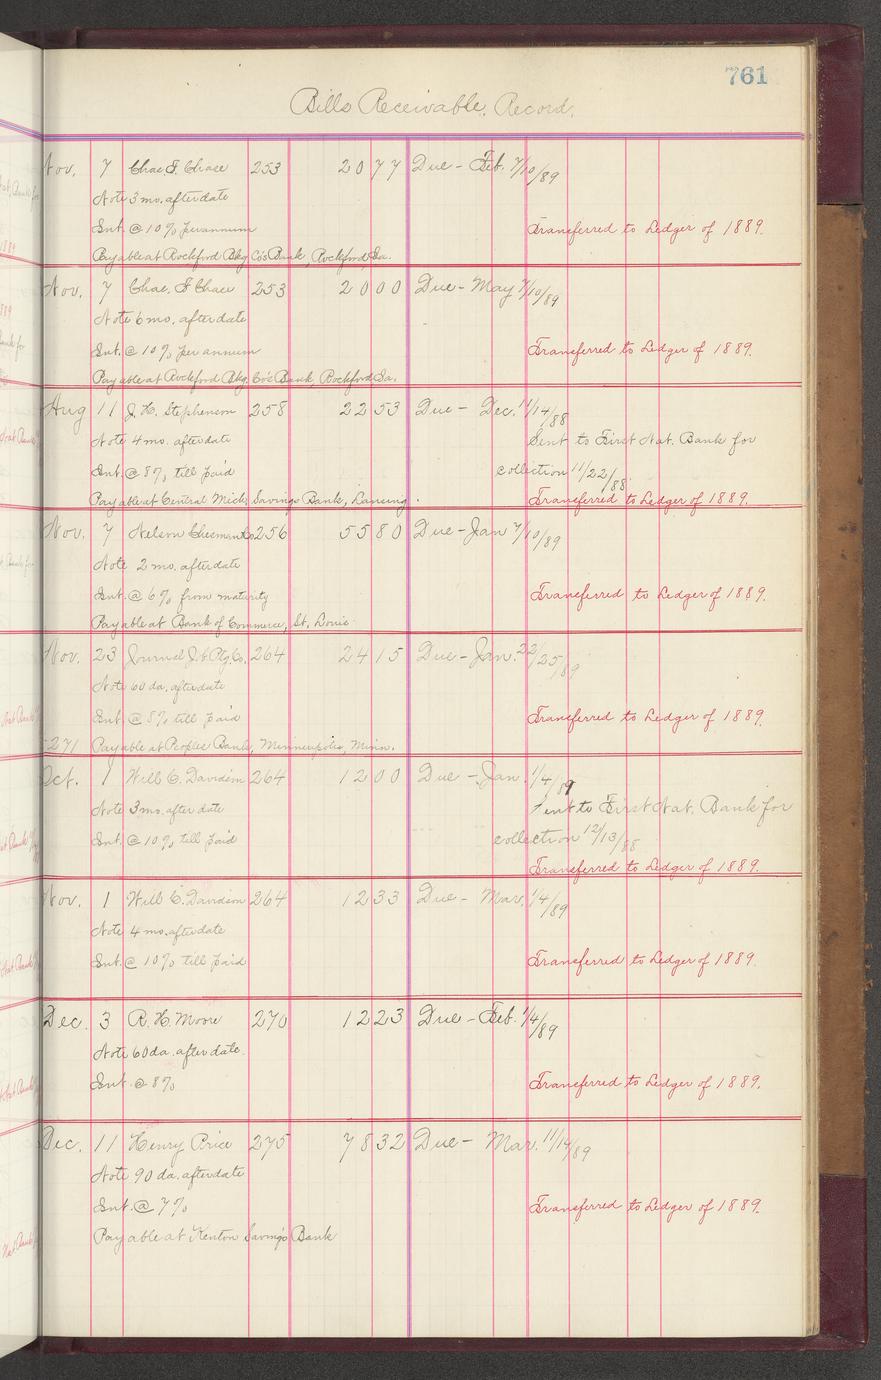 761
Bills Receivable Record.
Nov. 7 Chas. S. Chase 253 20 77 Due - Feb. 7/10/89
Note 3 mo. after date
Int. @ 10% per annum Transferred to Ledger of 1889.
Payable at Rockford Bkg Co's Bank, Rockford, Ia.
Nov. 7 Chas. S. Chase 253 20 00 Due - May 7/10/89
Note 6 mo. after date
Int. @ 10% per annum Transferred to Ledger of 1889.
Payable at Rockford Bkg. Co's Bank, Rockford Ia.
Aug 11 J. H. Stephenson 258 22 53 Due - Dec. 11/14/88
Note 4 mo. after date Sent to First Nat. Bank for
Int. @ 8% till paid collection 11/22/88
Payable at Central Mich. Savings Bank, Lansing. Transferred to Ledger of 1889.
Nov. 7 Nelson Chesman & Co 256 55 80 Due - Jan 7/10/89
Note 2 mo. after date
Int. @ 6% from maturity Transferred to Ledger of 1889.
Payable at Bank of Commerce, St. Louis
Nov. 23 Journal J. & Ptg. Co. 264 24 15 Due - Jan. 22/25/89
Note 60 da. after date
Int. @ 8% till paid Transferred to Ledger of 1889.
271 Payable at Peoples Bank, Minneapolis, Minn.
Oct. 1 Will C. Davidson 264 12 00 Due - Jan. 1/4/89
Note 3 mo. after date Sent to First Nat. Bank for
Int. @ 10% till paid collection 12/13/88
Transferred to Ledger of 1889.
Nov. 1 Will C. Davidson 264 12 33 Due - Mar. 1/4/89
Note 4 mo. after date
Int. @ 10% till paid Transferred to Ledger of 1889.
Dec. 3 R. H. Moore 270 12 23 Due - Feb. 1/4/89
Note 60 da. after date.
Int. @ 8% Transferred to Ledger of 1889.
Dec. 11 Henry Price 275 78 32 Due - Mar. 11/14/89
Note 90 da. after date
Int. @ 7% Transferred to Ledger of 1889.
Payable at Kenton Saving's Bank